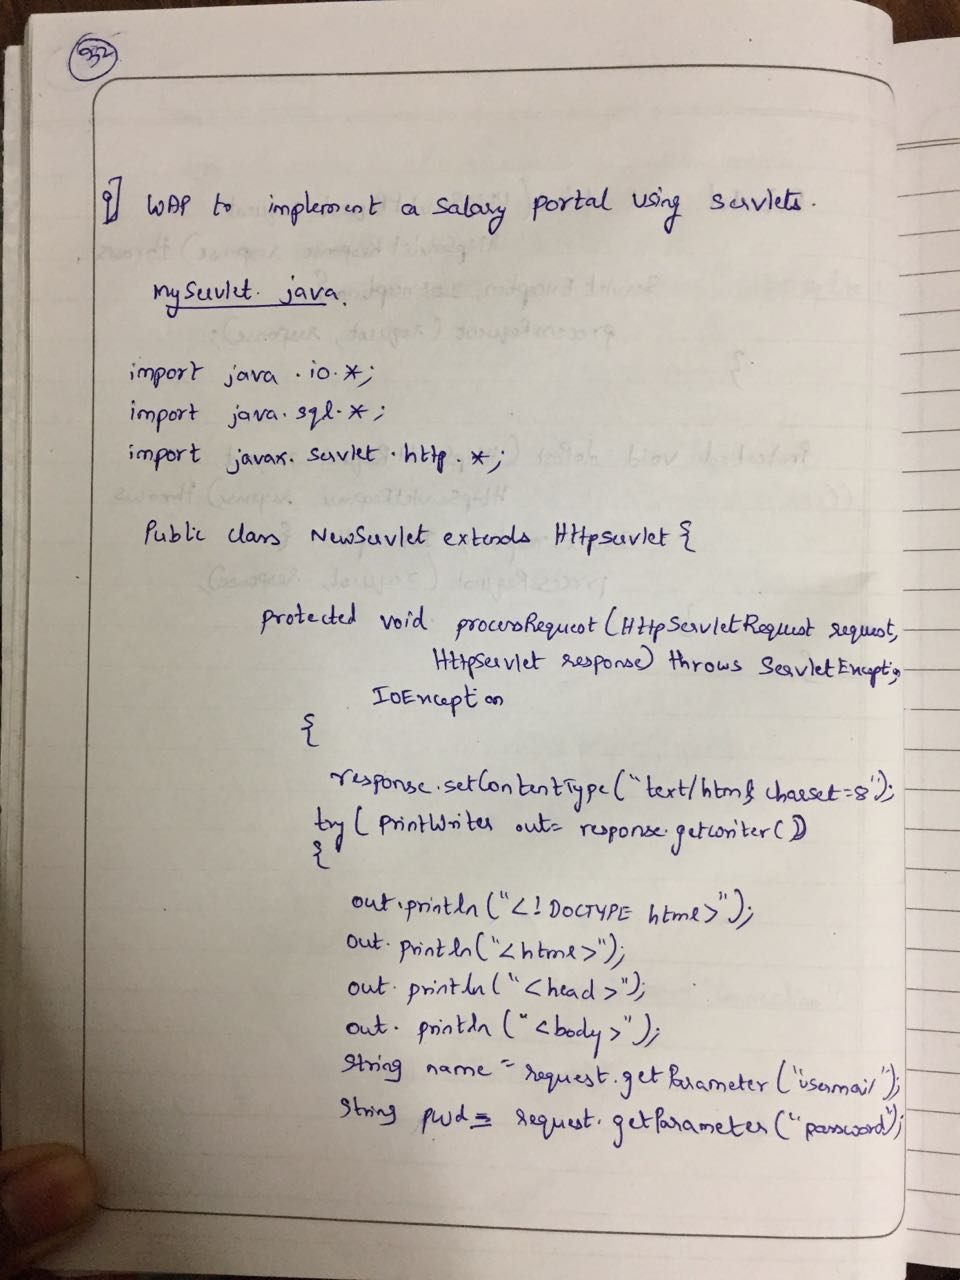 932
9] WAP to implement a salary portal using servlets.
MyServlet. java.
import java . io. *;
import java. sql. *;
import javax. servlet . http . *;
Public class NewServlet extends HttpServlet {
protected void processRequest (HttpServletRequest request,
HttpServlet response) throws ServletExcepti
IoException
{
response.setContentType("text/html charset=8");
try ( PrintWriter out= response.getWriter())
{
out.println ("<! DOCTYPE html>");
out. println("<html>");
out. println ("<head>");
out. println ("<body>");
String name = request.getParameter ("usermail");
String pwd = request.getParameter ("password");